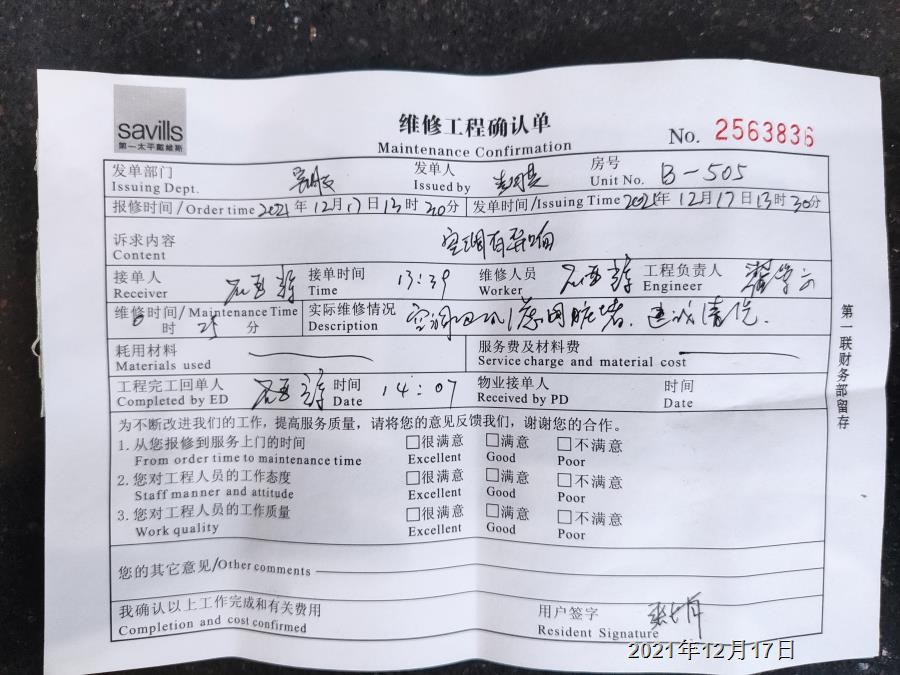 savills
第一太平戴维斯
维修工程确认单
Maintenance Confirmation
No. 2563836
发单部门 发单人 房号
Issuing Dept. 客服 Issued by Unit No. B-505
报修时间/Order time 2021年12月17日13时30分 发单时间/Issuing Time 2021年12月17日13时30分
诉求内容 空调有异响
Content
接单人 接单时间 13:39 维修人员 工程负责人
Receiver Time Worker Engineer
维修时间/Maintenance Time 实际维修情况 空调回风滤网脏堵.建议清洗.
0时25分 Description
耗用材料 服务费及材料费
Materials used Service charge and material cost
工程完工回单人 时间 14:07 物业接单人 时间
Completed by ED Date Received by PD Date
为不断改进我们的工作，提高服务质量，请将您的意见反馈我们，谢谢您的合作。
1. 从您报修到服务上门的时间 □很满意 □满意 □不满意
From order time to maintenance time Excellent Good Poor
2. 您对工程人员的工作态度 □很满意 □满意 □不满意
Staff manner and attitude Excellent Good Poor
3. 您对工程人员的工作质量 □很满意 □满意 □不满意
Work quality Excellent Good Poor
您的其它意见/Other comments
我确认以上工作完成和有关费用 用户签字
Completion and cost confirmed Resident Signature
第一联财务部留存
2021年12月17日